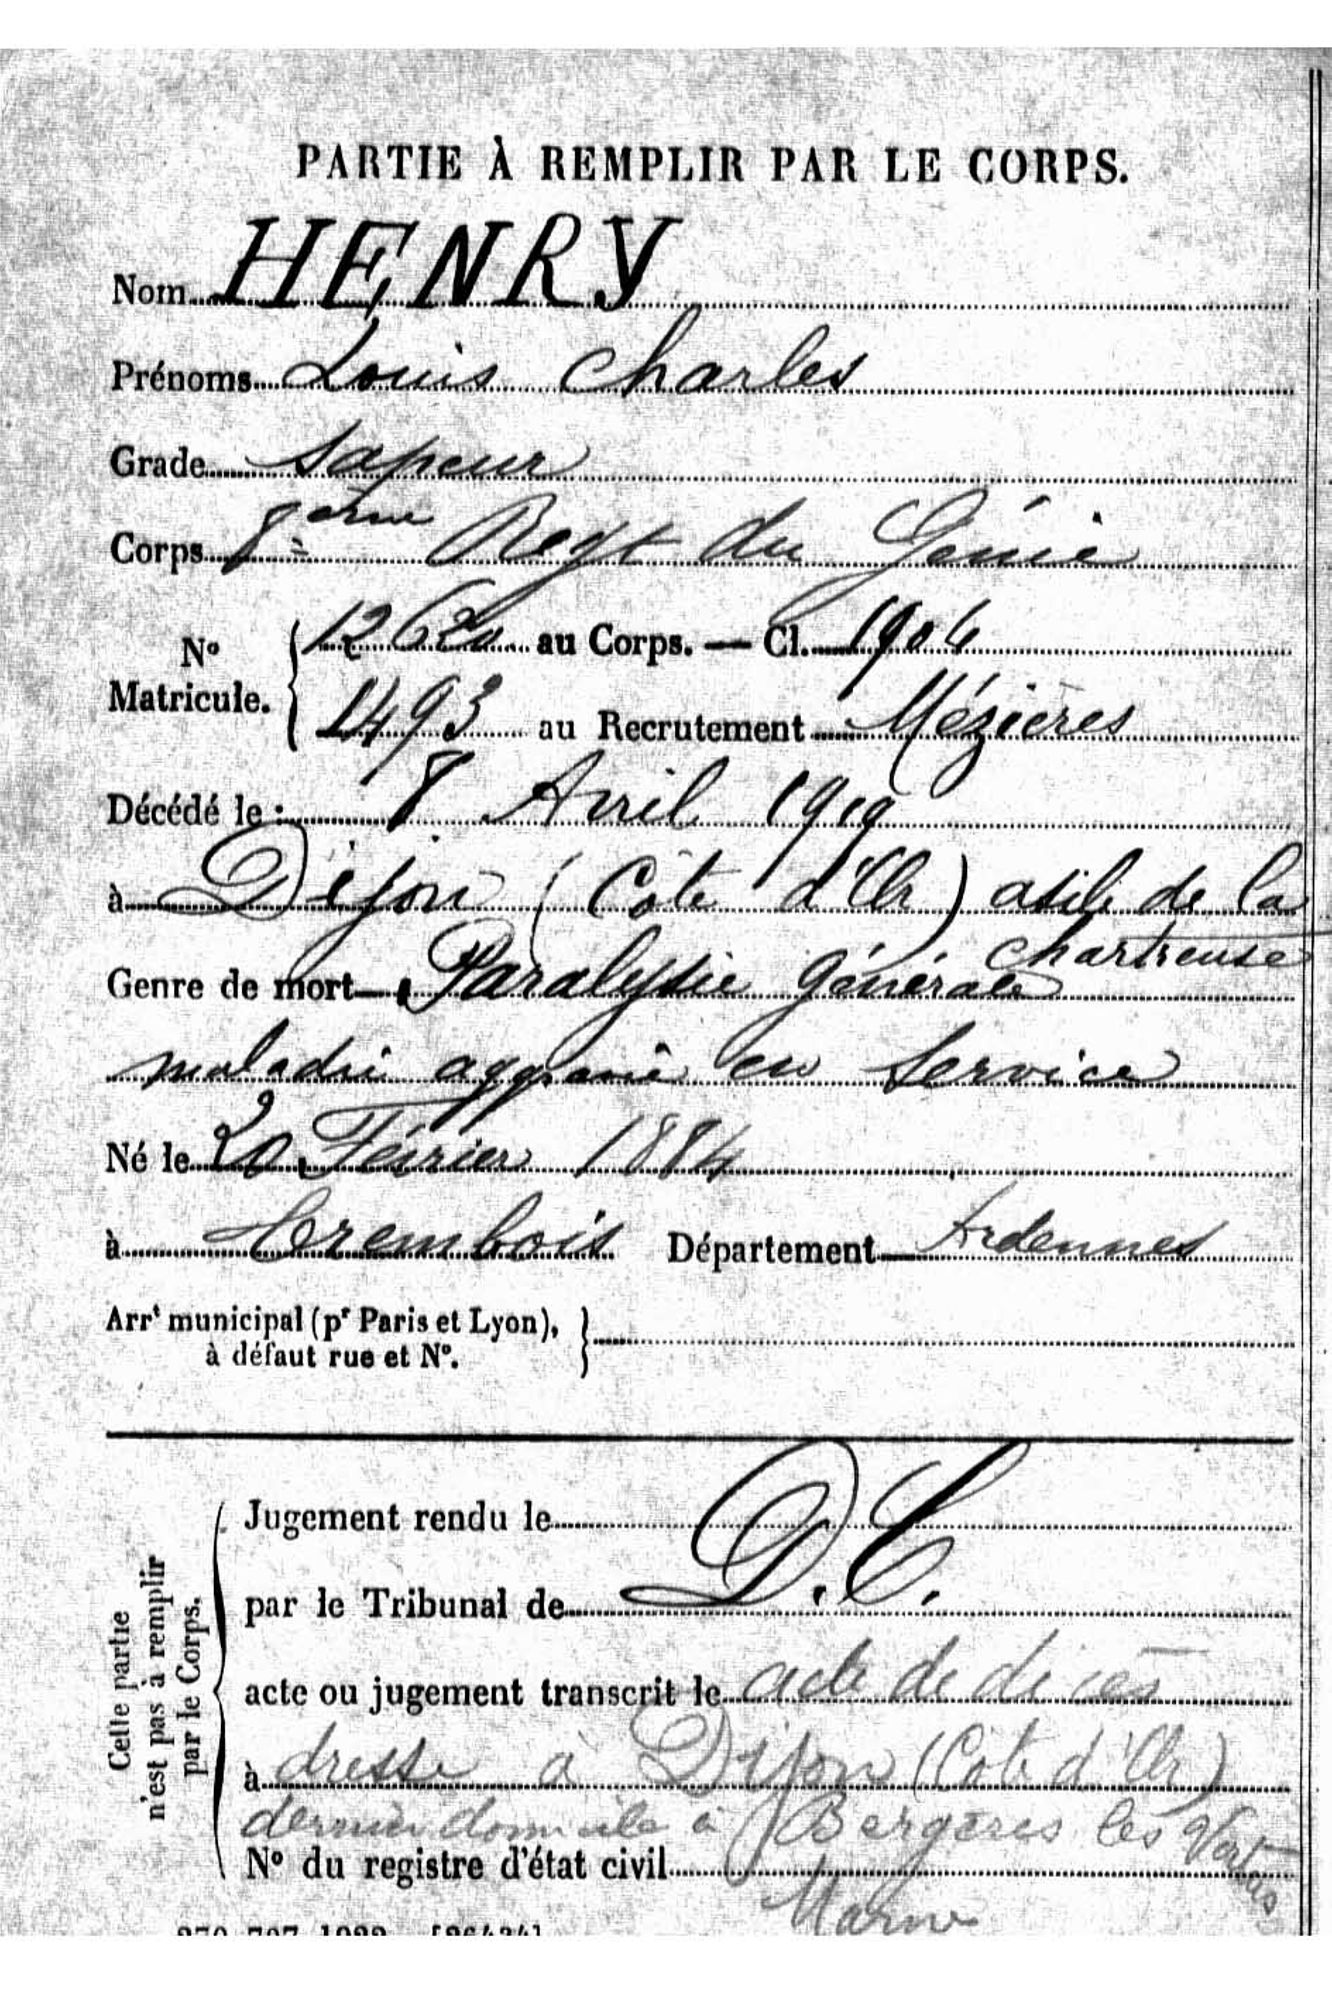 PARTIE À REMPLIR PAR LE CORPS.
Nom HENRY
Prénoms Louis Charles
Grade Sapeur
Corps 8ème Regt du Génie
No Matricule. 12620 au Corps. — Cl. 1904
1493 au Recrutement Mézières
Décédé le : 8 Avril 1919
à Dijon (Côte d'Or) asile de la
Chartreuse
Genre de mort Paralysie Générale
maladie aggravé en Service
Né le 20 Février 1884
à Département Ardennes
Arrt municipal (pr Paris et Lyon),
à défaut rue et No.
D.C.
Jugement rendu le
par le Tribunal de
acte ou jugement transcrit le acte de décès
à dressé à Dijon (Côte d'Or)
dernier domicile à Bergères les Vertus
No du registre d'état civil
Marne
Cette partie
n'est pas à remplir
par le Corps.